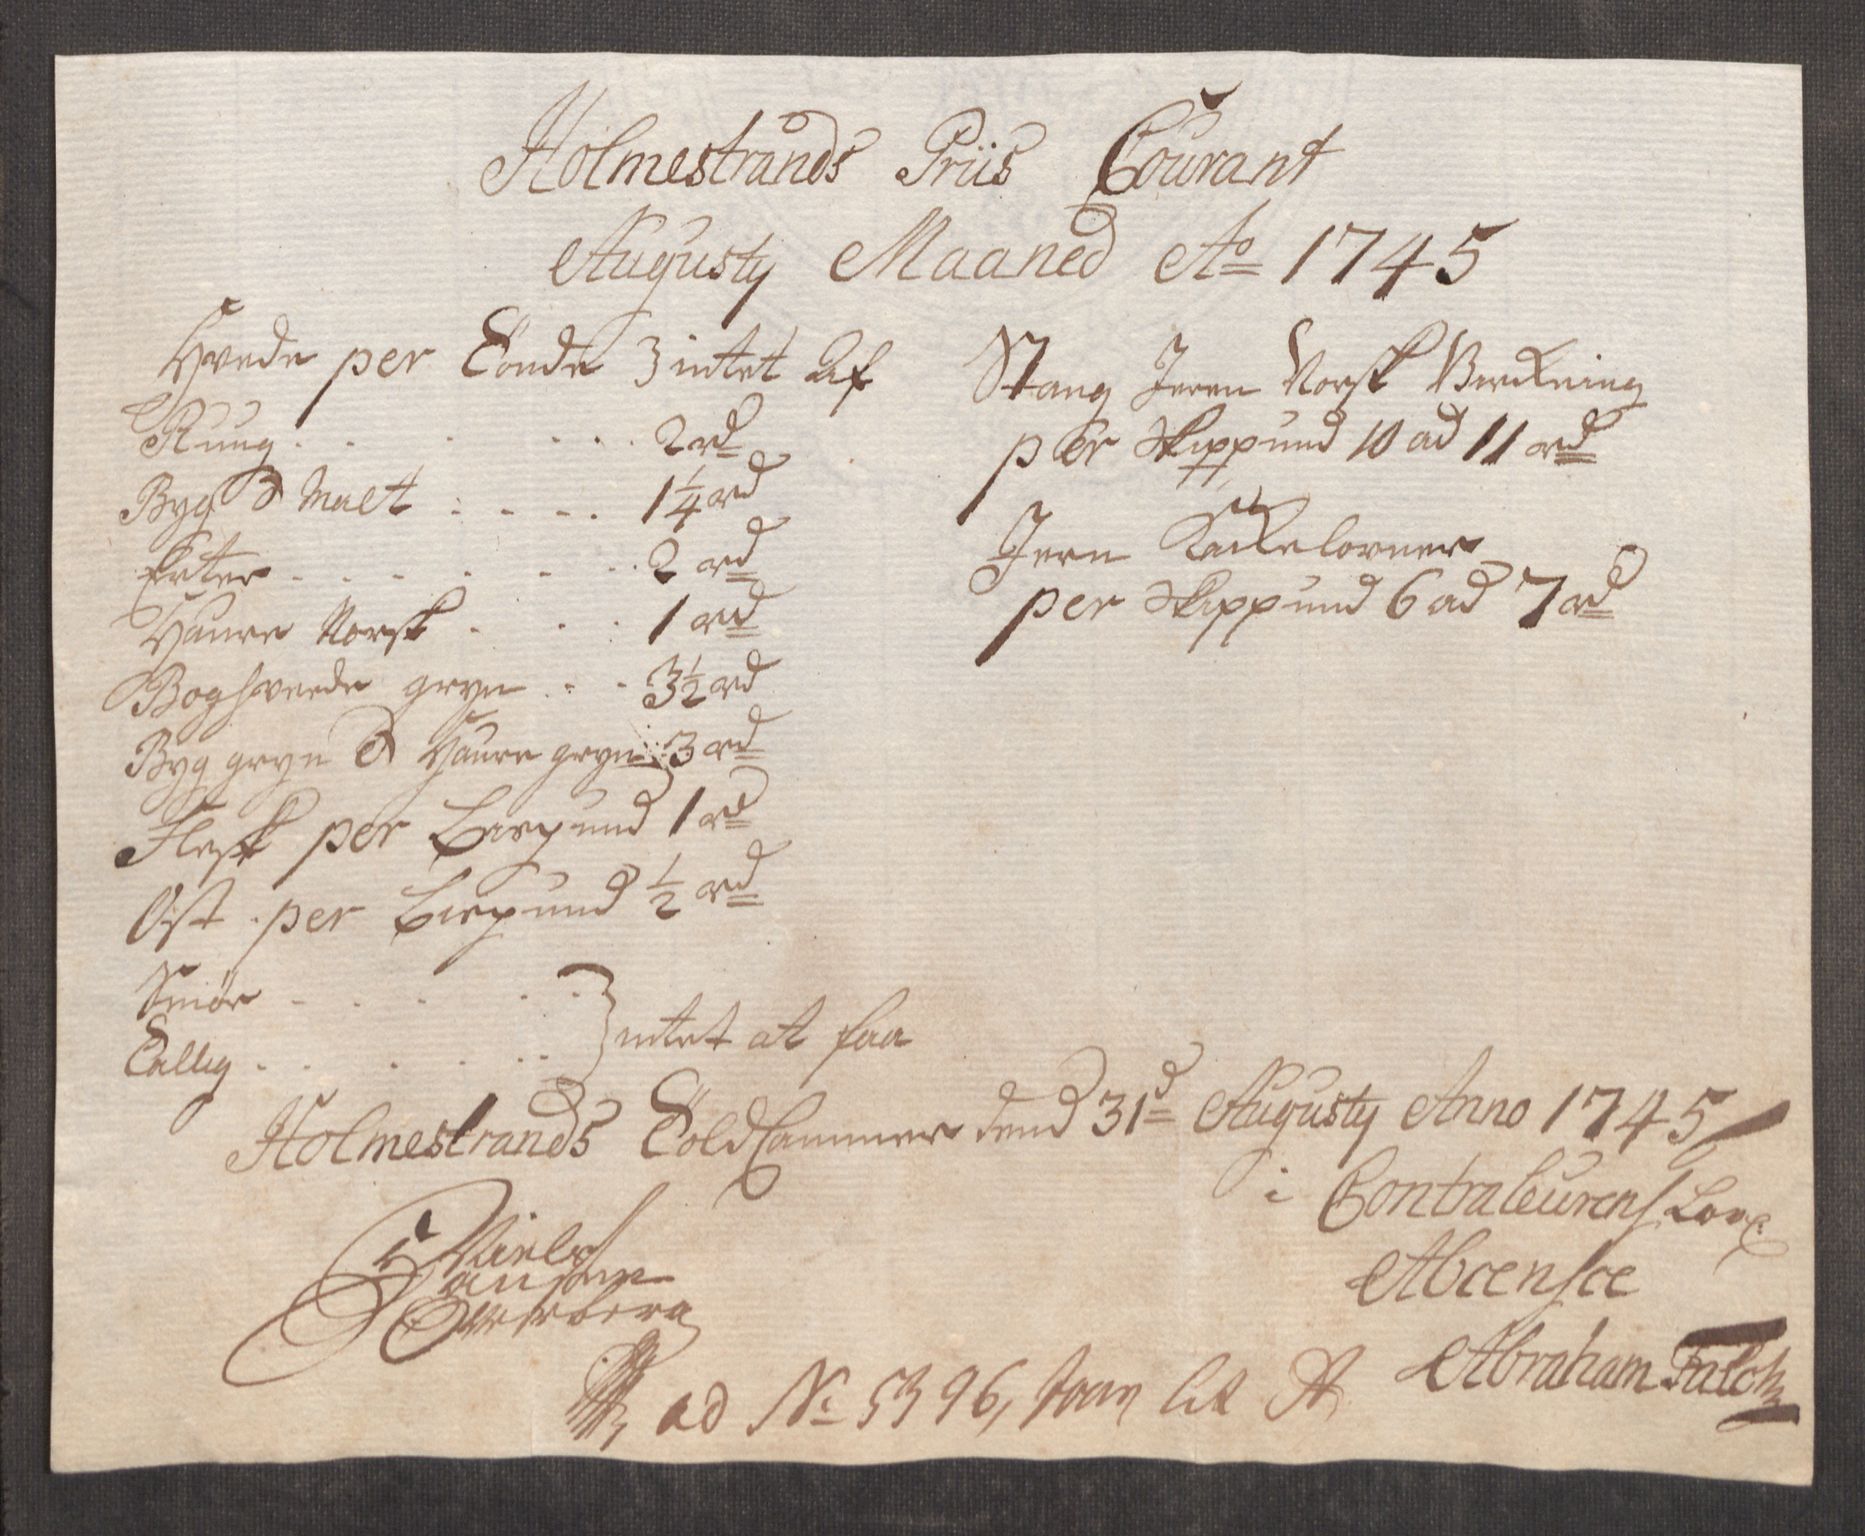 Holmestrands Priis Courant
Augusty Maaned Ao 1745
Hvede per Tönde } intet Af
Rung . . . . . . 2 rd
Byg & Malt . . . . 1 1/4 rd
Erter . . . . . . 2 rd
Haure Norsk . . . 1 rd
Boghvede gryn . . 3 1/2 rd
Byg gryn & Haure gryn 3 rd
Flesk per Lispund 1 rd
Ost per Lispund 1/2 rd
Smör . . . . .
Tallig . . . . . . } intet at faa
Stang Jern Norsk Virkning
per Skippund 10 ad 11 rd
Jern Kackelovner
per Skippund 6 ad 7 rd
Holmestrands ToldCammer dend 31d Augusty Anno 1745
i Contraleurens Lov:
Abcensce
Niels
Hansen
Overberg
Abraham Falck
ad No 5396, Lit A